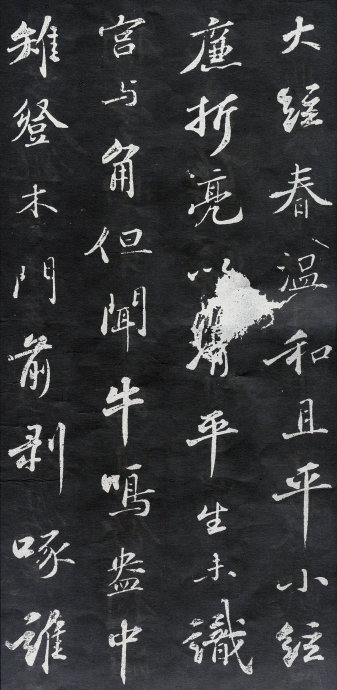 大絃春温和且平小絃
廉折亮以平生未識
宮与角但聞牛鳴盎中
雉登木門前剥啄誰